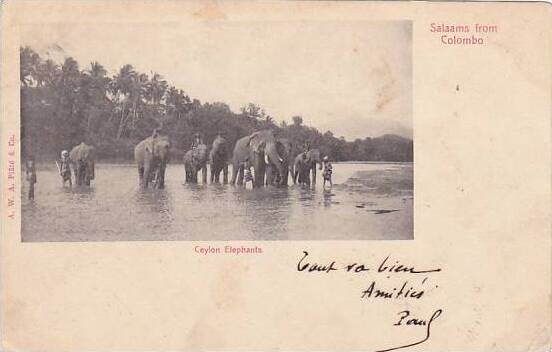 Salaams from
Colombo
A. W. A. Plâté & Co.
Ceylon Elephants.
Tout va bien
Amitiés
Paul